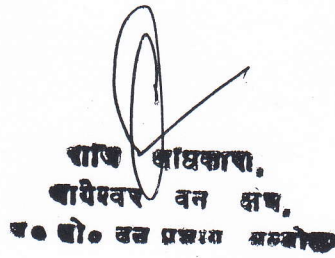 राजि अधिकारी,
बागेश्वर वन क्षेत्र,
सो० वन प्रभाग अल्मोड़ा